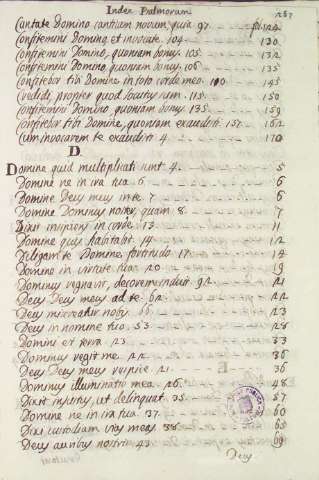 Index Psalmorum
Cantate Domino canticum novum, quia 97. - - - - fol. 124
Confitemini Domino et invocate. 104. - - - - 130
Confitemini Domino, quoniam bonus. 105. - - - - 132
Confitemini Domino, quoniam bonus. 106. - - - - 135
Confitebor tibi Domine in toto corde meo. 110 - - - - 145
Credidi, propter quod locutus sum. 115. - - - - 150
Confitemini Domino, quoniam bonus. 135. - - - - 159
Confitebor tibi Domine, quoniam exaudisti. 137. - - - - 162
Cum invocarem te exaudivit 4. - - - - 170
D.
Domine quid multiplicati sunt 4. - - - - 5
Domine ne in ira tua. 6. - - - - 6
Domine Deus meus in te 7 - - - - 6
Domine Dominus noster, quam. 8. - - - - 7
Dixit insipiens in corde. 13 - - - - 11
Domine quis habitabit. 14 - - - - 12
Diligam te Domine fortitudo. 17. - - - - 14
Domine in virtute tua. 20 - - - - 19
Dominus regnavit, decorem induit 92. - - - - 21
Deus Deus meus ad te. 62. - - - - 22
Deus misereatur nobis. 66 - - - - 23
Deus in nomine tuo. 53 - - - - 28
Domini est terra. 23. - - - - 33
Dominus regit me. 22. - - - - 36
Deus Deus meus respice. 21. - - - - 36
Dominus illuminatio mea. 26. - - - - 48
Dixit injustus, ut delinquat. 35. - - - - 57
Domine ne in ira tua. 37. - - - - 60
Dixi custodiam vias meas. 38. - - - - 65
Deus auribus nostris. 43. - - - - 69
Deus